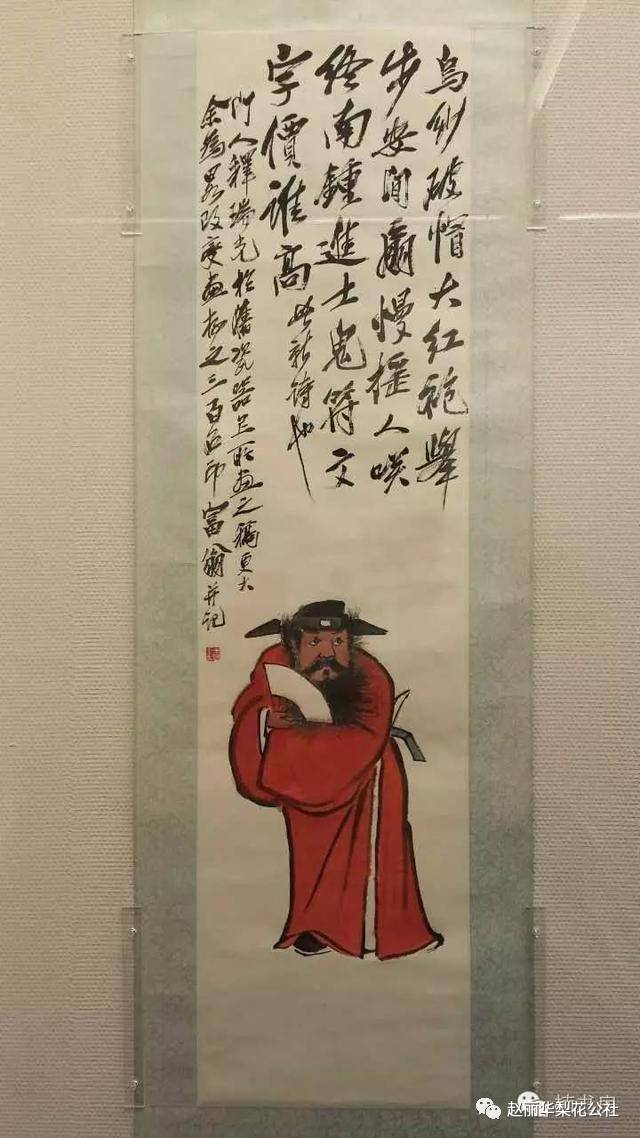 烏紗破帽大紅袍舉
步安閒扇慢搖人咲
終南鍾進士鬼符文
字價誰高此新詩也
門人釋瑞光於舊瓷器上所畫之稿更大
余畧改變畫之三百石印富翁并記
赵丽华梨花公社